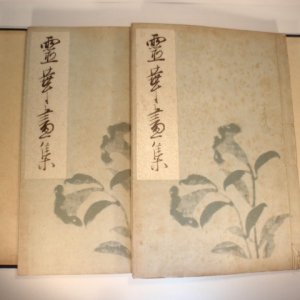 靈華畫集
靈華畫集